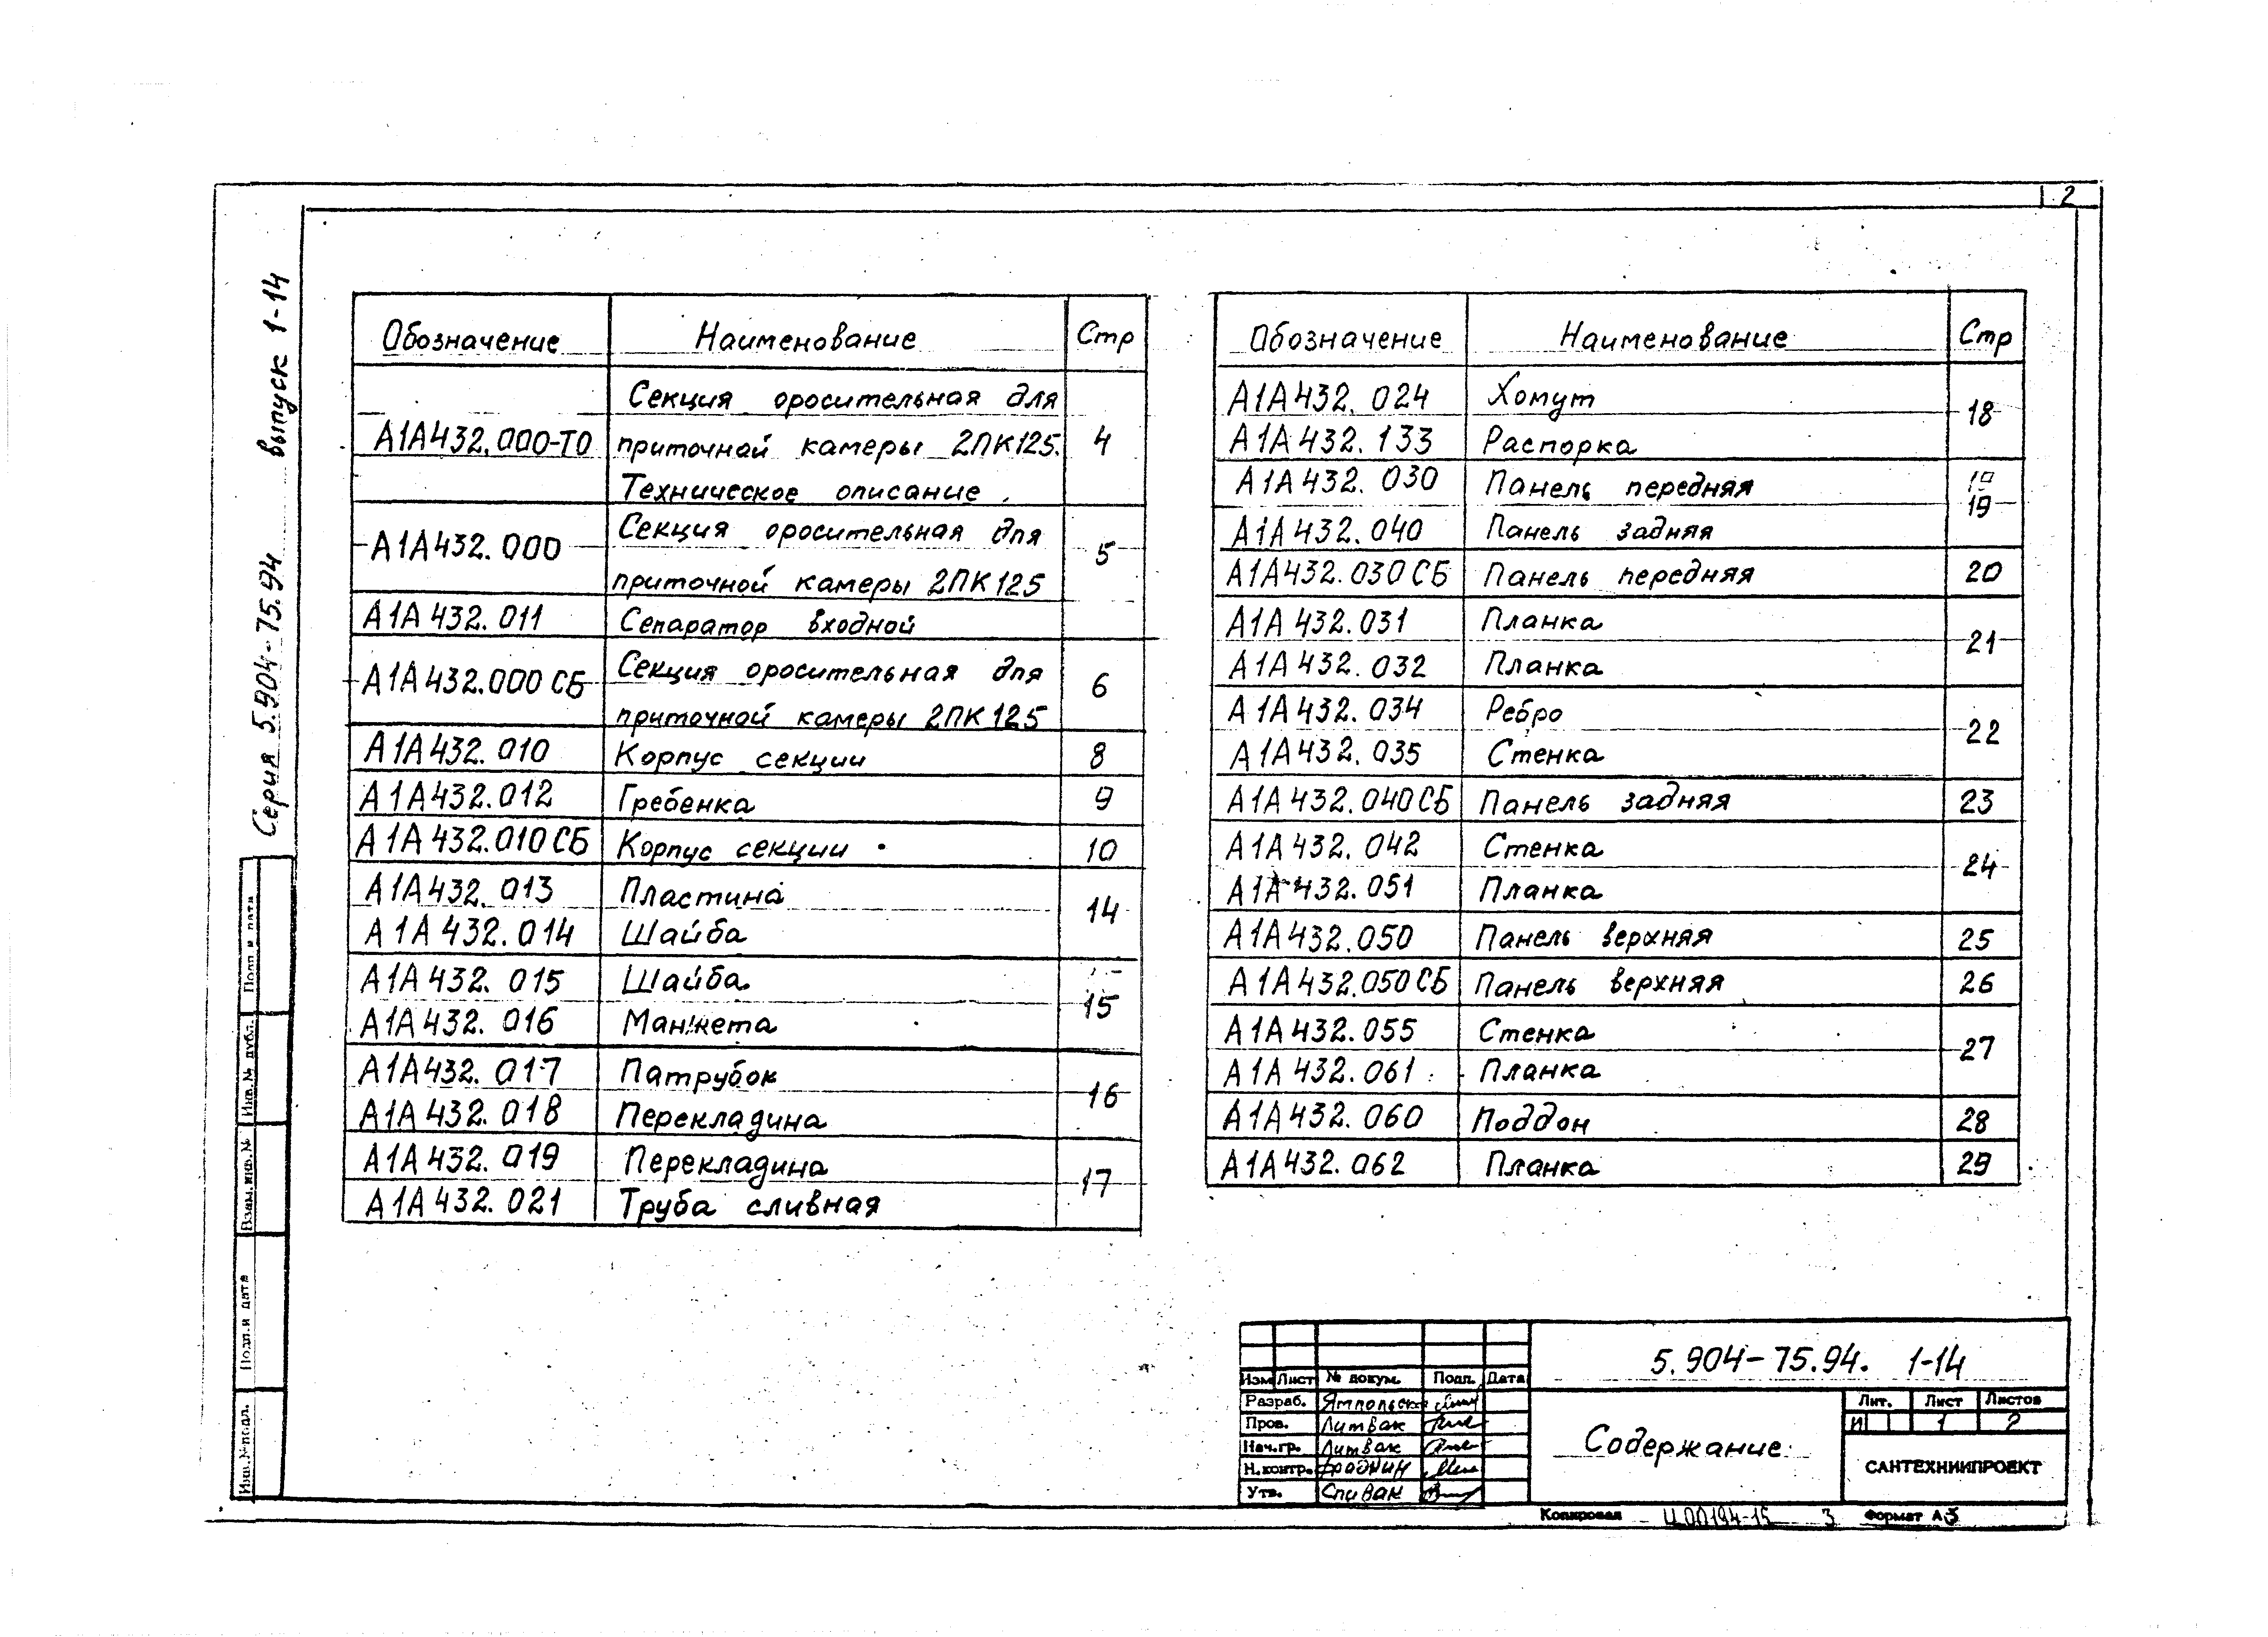 2
Серия 5.904-75.94 выпуск 1-14
Обозначение Наименование Стр
А1А432.000-ТО Секция оросительная для
приточной камеры 2ПК125.
Техническое описание. 4
А1А432.000 Секция оросительная для
приточной камеры 2ПК125 5
А1А432.011 Сепаратор входной
А1А432.000 СБ Секция оросительная для
приточной камеры 2ПК125 6
А1А432.010 Корпус секции 8
А1А432.012 Гребенка 9
А1А432.010 СБ Корпус секции 10
А1А432.013 Пластина 14
А1А432.014 Шайба
А1А432.015 Шайба 15
А1А432.016 Манжета
А1А432.017 Патрубок 16
А1А432.018 Перекладина
А1А432.019 Перекладина 17
А1А432.021 Труба сливная
Обозначение Наименование Стр
А1А432.024 Хомут 18
А1А432.133 Распорка
А1А432.030 Панель передняя 19
А1А432.040 Панель задняя
А1А432.030 СБ Панель передняя 20
А1А432.031 Планка 21
А1А432.032 Планка
А1А432.034 Ребро 22
А1А432.035 Стенка
А1А432.040 СБ Панель задняя 23
А1А432.042 Стенка 24
А1А432.051 Планка
А1А432.050 Панель верхняя 25
А1А432.050 СБ Панель верхняя 26
А1А432.055 Стенка 27
А1А432.061 Планка
А1А432.060 Поддон 28
А1А432.062 Планка 29
Подп. и дата
Инв.№ дубл.
Взам. инв.№
Подп. и дата
Инв.№ подл.
5.904-75.94. 1-14
Изм Лист № докум. Подп. Дата
Разраб.
Пров. Литвак
Нач.гр. Литвак
Н.контр. Фрадкин
Утв. Спивак
Содержание
Лит. Лист Листов
И 1 2
САНТЕХНИИПРОЕКТ
Копировал Ц00194-15 3 Формат А3